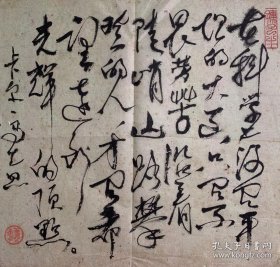 在科学上没有平
坦的大道只有不
畏劳苦沿着
陡峭山路攀
登的人,才有希
望达到
光辉的顶点。
卡尔马克思
孔夫子旧书网